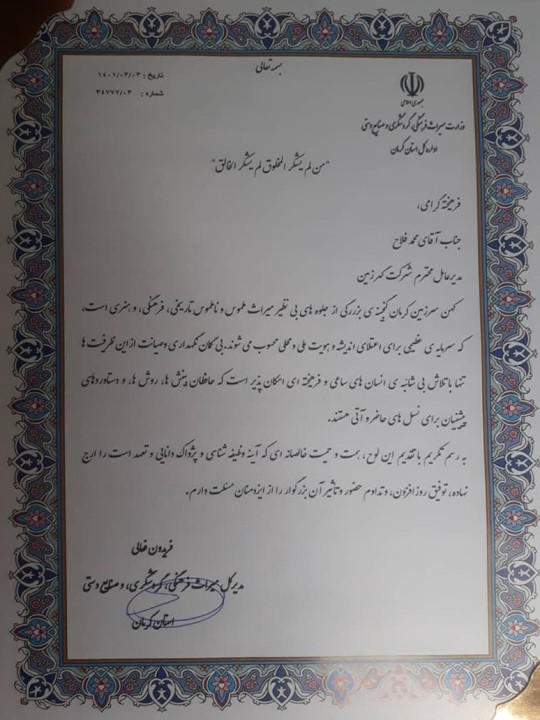 بسمه تعالی
تاریخ : ۱۴۰۱/۰۳/۰۳
شماره : ۳۴۷۷۷/۰۳
جمهوری اسلامی
وزارت میراث فرهنگی، گردشگری و صنایع دستی
اداره کل استان کرمان
"من لم یشکر المخلوق لم یشکر الخالق"
فرهیخته گرامی،
جناب آقای محمد فلاح
مدیرعامل محترم شرکت گهرزمین
کهن سرزمین کرمان گنجینه ی بزرگی از جلوه های بی نظیر میراث ملموس و ناملموس تاریخی، فرهنگی، و هنری است،
که سرمایه ی عظیمی برای اعتلای اندیشه و هویت ملی و محلی محسوب می شوند. بی گمان نگهداری و صیانت از این ظرفیت ها
تنها با تلاش بی شائبه ی انسان های ساعی و فرهیخته ای امکان پذیر است که حافظان بینش ها، روش ها، و دستاوردهای
پیشینیان برای نسل های حاضر و آتی هستند.
به رسم تکریم با تقدیم این لوح، همت و حمیت خالصانه ای که آینه وظیفه شناسی و پژواک دانایی و تعهد است را ارج
نهاده، توفیق روزافزون، و تداوم حضور و تاثیر آن بزرگوار را از ایزدمنان مسئلت دارم.
فریدون فعالی
مدیرکل میراث فرهنگی، گردشگری، و صنایع دستی
استان کرمان